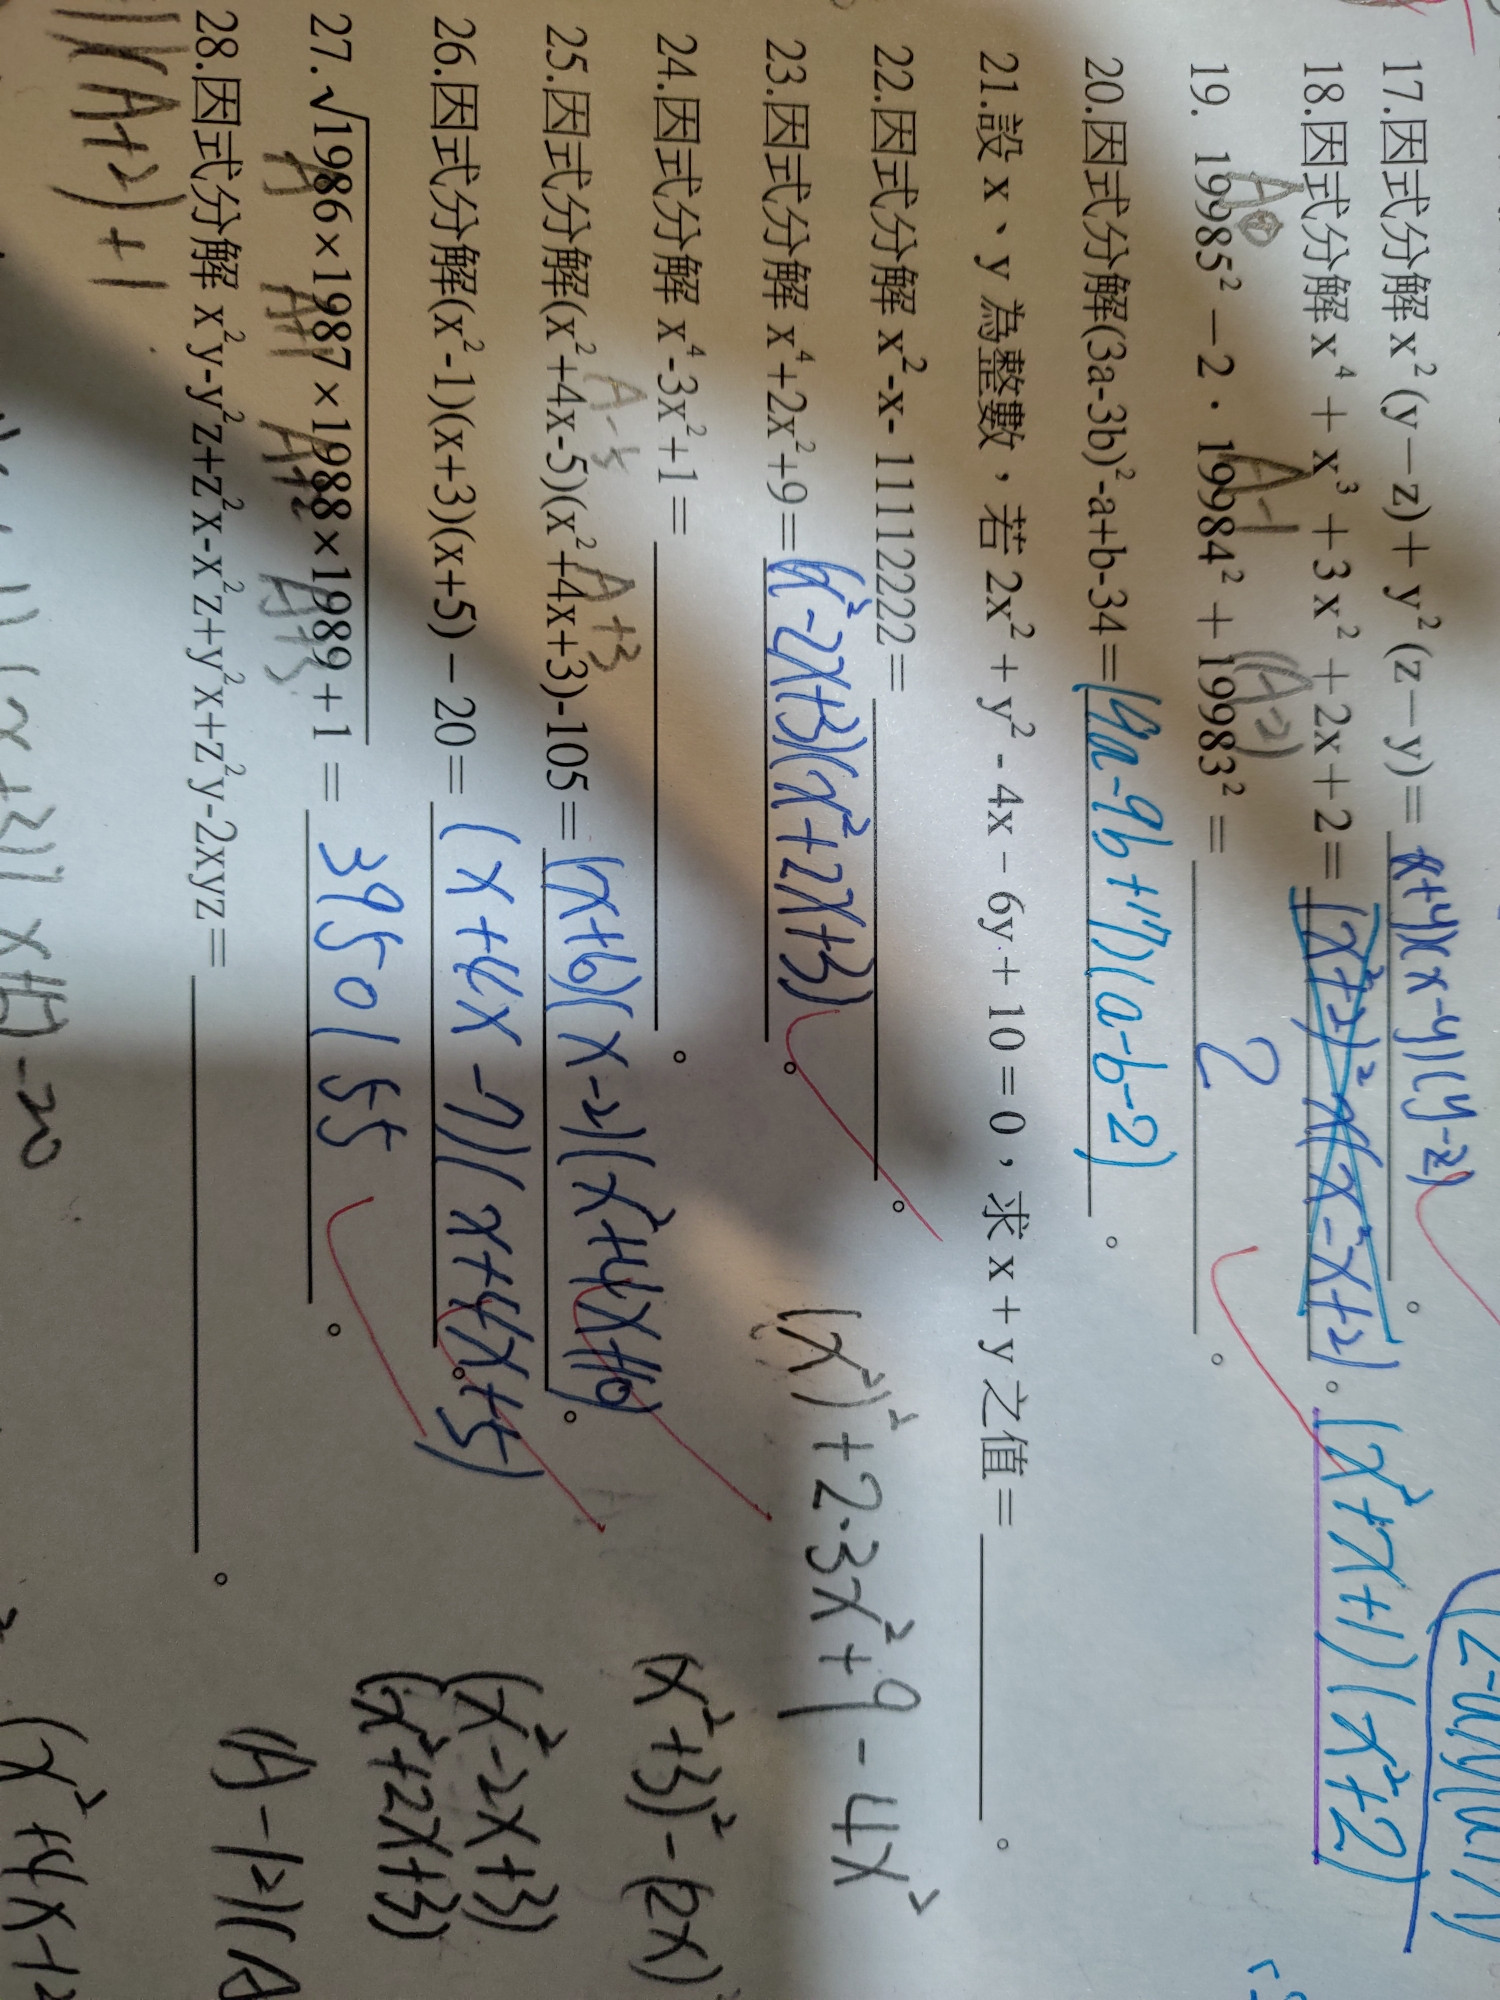 17.因式分解 x²(y－z)＋y²(z－y)＝(x+y)(x-y)(y-z)。
18.因式分解 x⁴＋x³＋3x²＋2x＋2＝(x²+2)² x(x²-x+2)。(x²+x+1)(x²+2)
A A-1 (A-2)
19. 19985²－2．19984²＋19983²＝2。
20.因式分解(3a-3b)²-a+b-34＝(9a-9b+17)(a-b-2)。
21.設 x、y 為整數，若 2x²+y²-4x-6y+10=0，求 x+y 之值＝。
22.因式分解 x²-x-11112222＝。
23.因式分解 x⁴+2x²+9＝(x²-2x+3)(x²+2x+3)。
(x²)²+2·3x²+9-4x²
24.因式分解 x⁴-3x²+1＝。
(x²+3)²-(2x)
A-5 A+3
25.因式分解(x²+4x-5)(x²+4x+3)-105＝(x+6)(x-2)(x²+4x+10)。
(x²-2x+3)
(x²+2x+3)
26.因式分解(x²-1)(x+3)(x+5)－20＝(x+4x-7)(x+4x+5)。
27.√1986×1987×1988×1989+1＝3950155。
A A+1 A+2 A+3
28.因式分解 x²y-y²z+z²x-x²z+y²x+z²y-2xyz＝。
(A+2)+1
-20